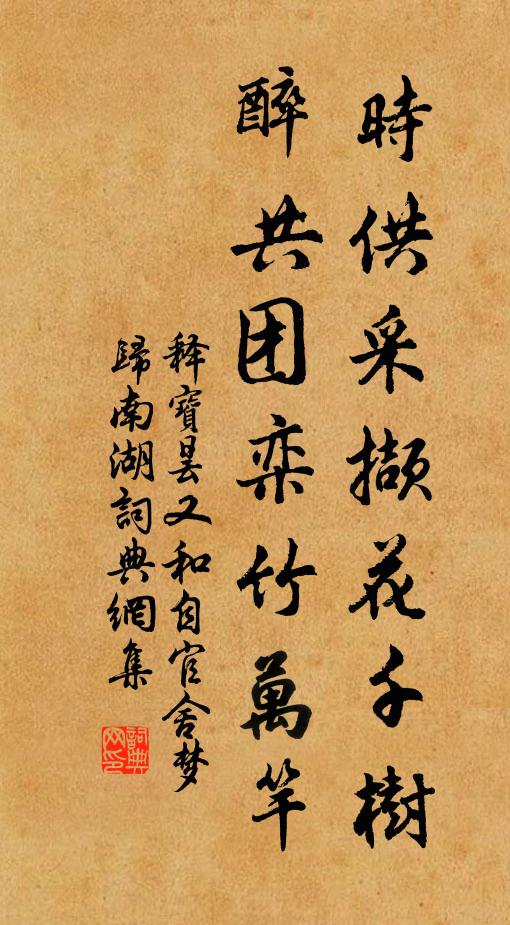 時供采擷花千樹
醉共团栾竹萬竿
释寶曇又和自官舍梦
歸南湖詞典網集
詞典网印